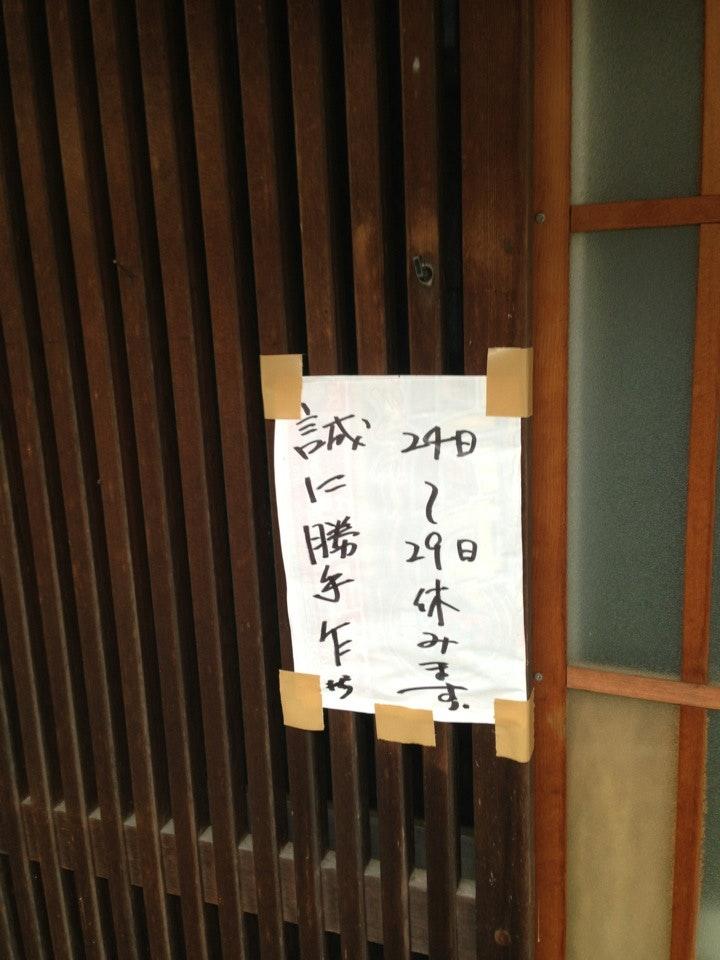 24日〜29日休みます。
誠に勝手乍ら